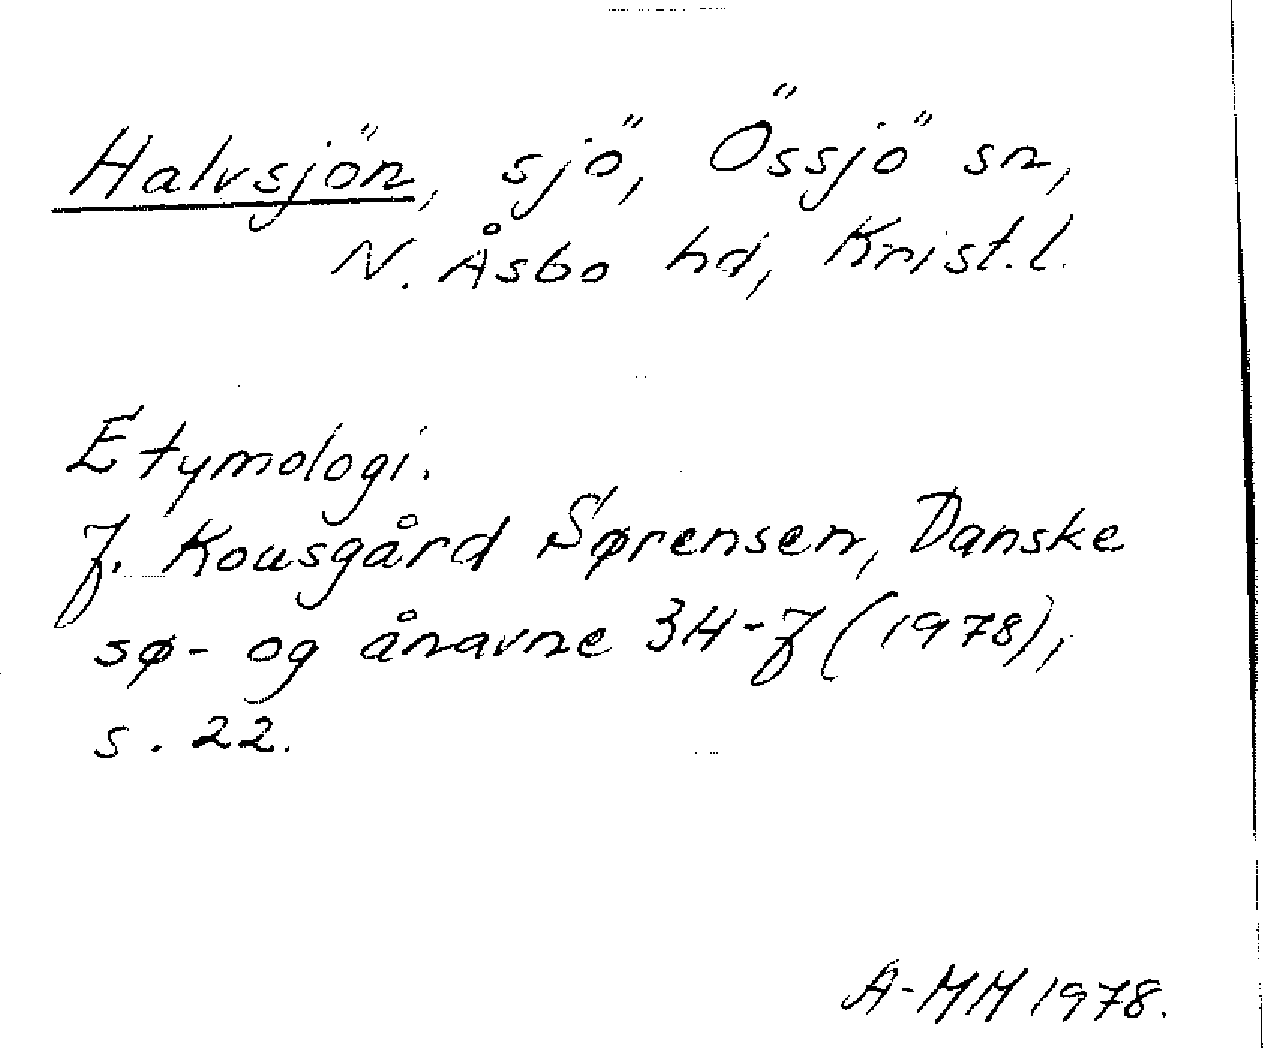 Halvsjön, sjö, Össjö sn,
N. Åsbo hd, Krist.l.
Etymologi.
J. Kousgård Sørensen, Danske
sø- og ånavne 3H-J (1978),
s. 22.
A-MM 1978.